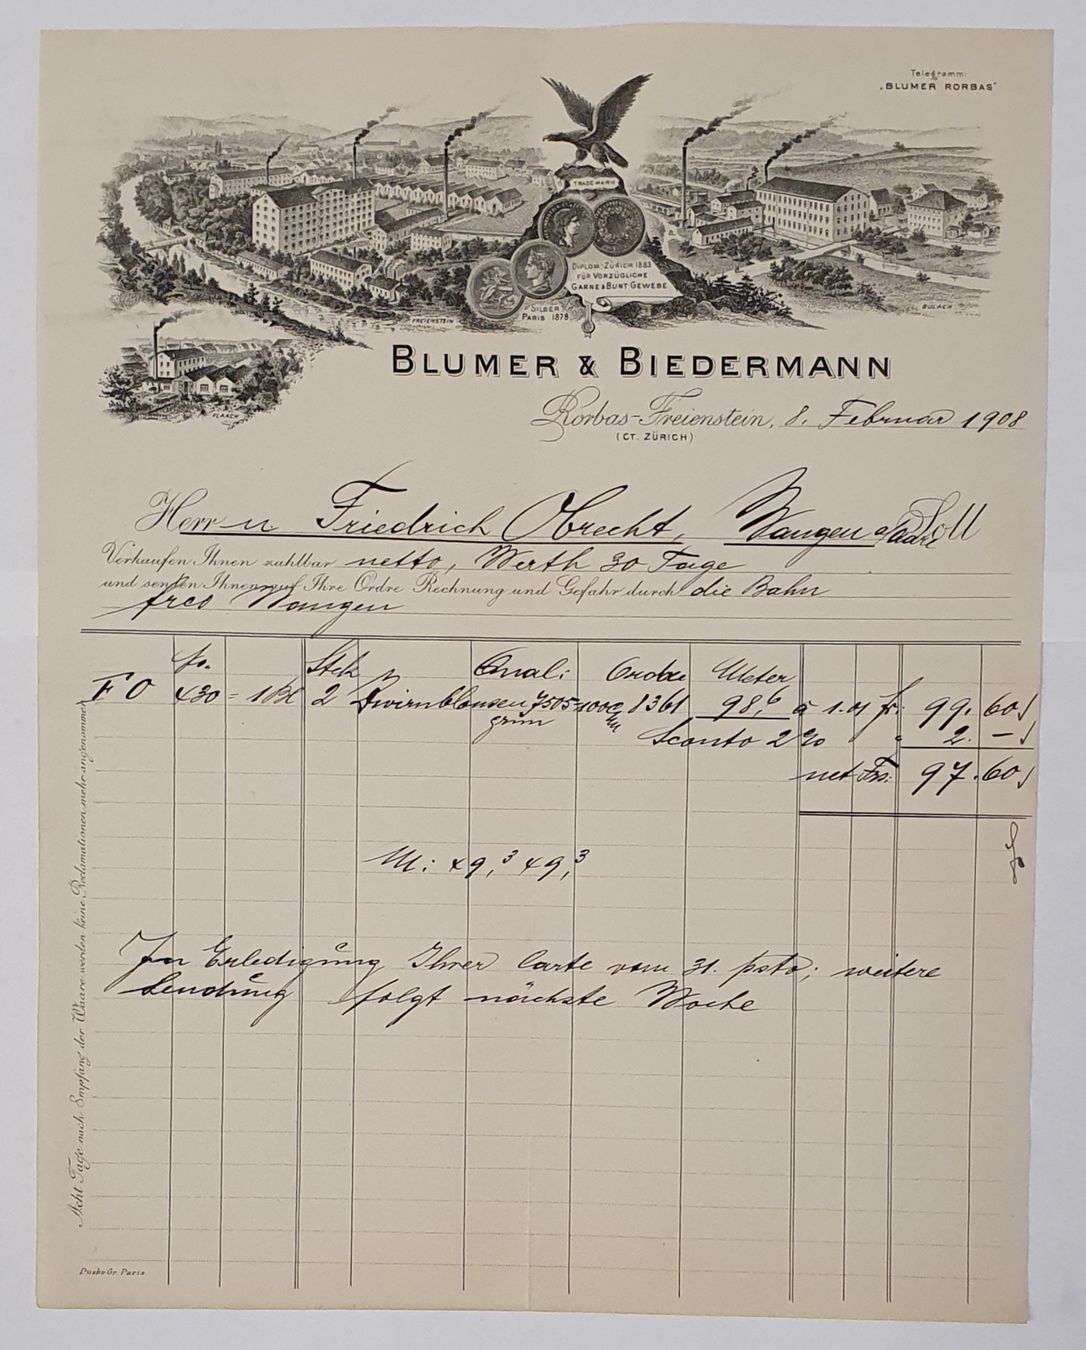 Telegramm:
„BLUMER RORBAS"
TRADE MARK
DIPLOM: ZÜRICH 1883
FÜR VORZÜGLICHE
GARNE & BUNT GEWEBE
SILBER
PARIS 1878
FREIENSTEIN
BÜLACH
FLAACH
BLUMER & BIEDERMANN
Rorbas-Freienstein, 8. Februar 1908
(CT. ZÜRICH)
Herrn Friedrich Obrecht, Wangen a/Aare Soll
Verkaufen Ihnen zahlbar netto, Werth 30 Tage
und senden Ihnen auf Ihre Ordre Rechnung und Gefahr durch die Bahn
frco Wangen
No. Stck Qual: Ordre Meter
F O 430 = 1 Bl 2 Zwirnblousen 7505 8361 98,6 à 1.01 fr: 99.60
grün
Sconto 2% " 2.–
net Frs: 97.60
M: 49,3 49,3
In Erledigung Ihrer Carte vom 31. psto; weitere
Sendung folgt nächste Woche
Acht Tage nach Empfang der Waare werden keine Reclamationen mehr angenommen.